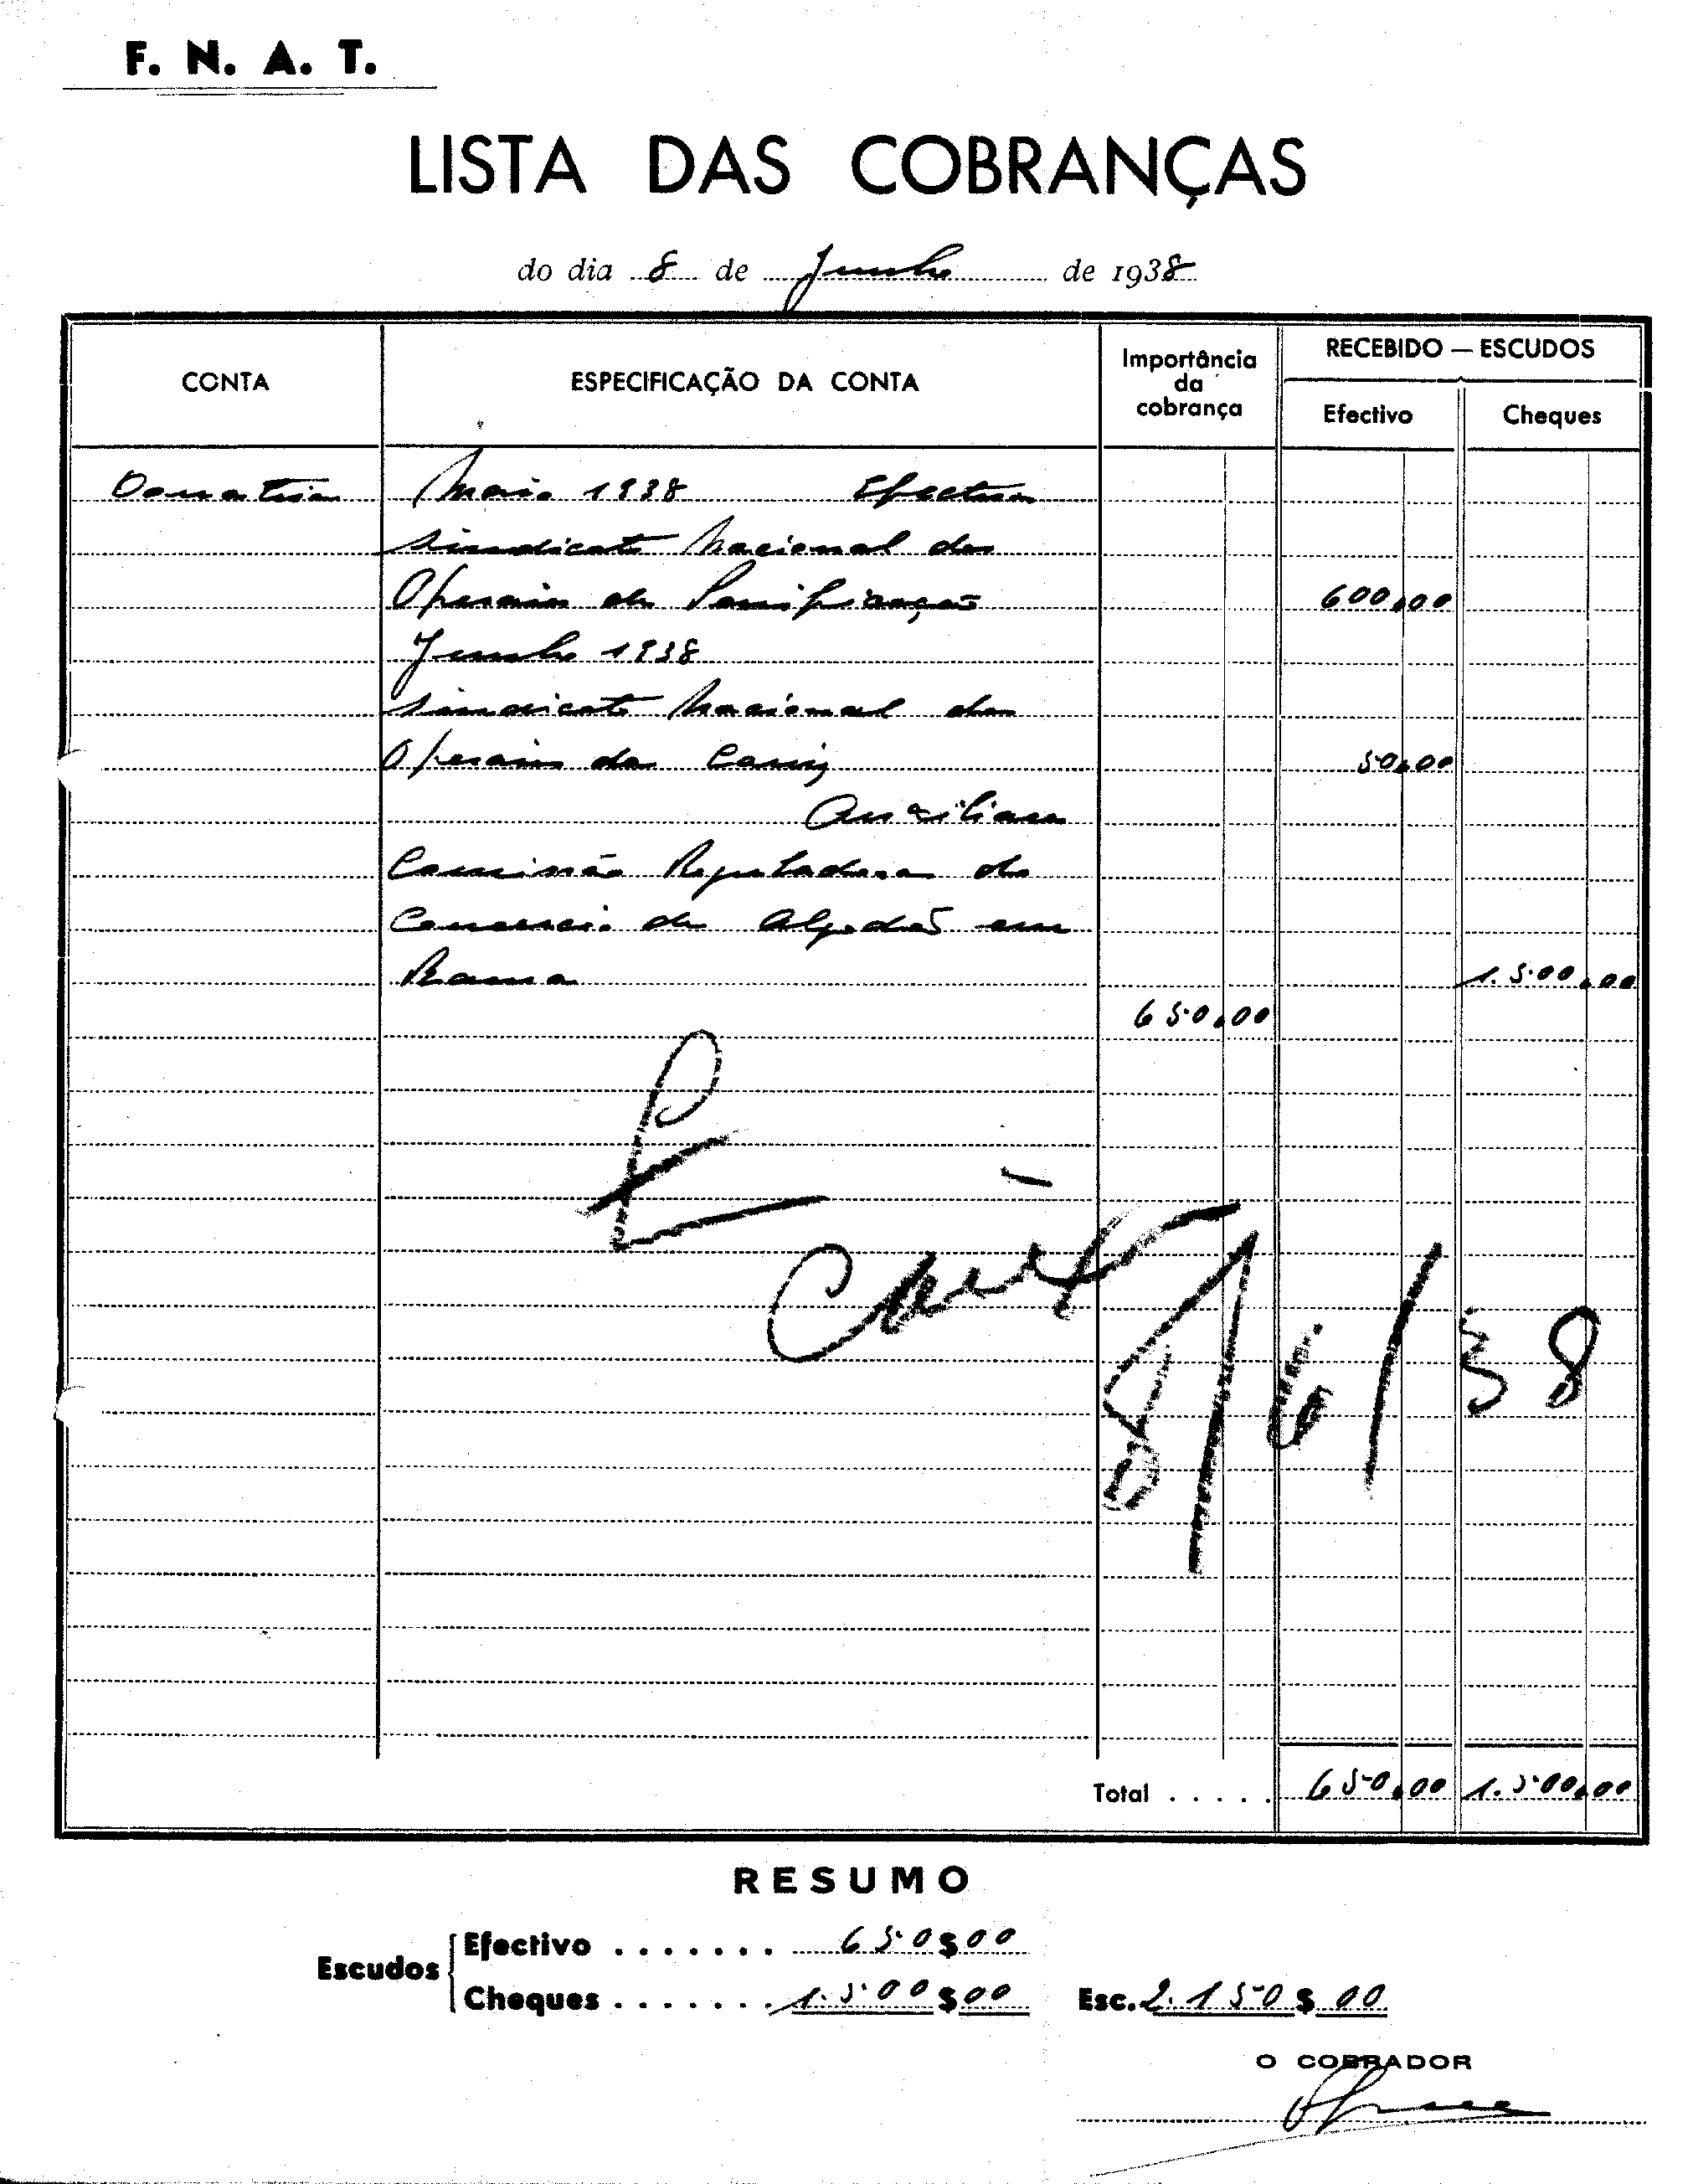 F. N. A. T.
LISTA DAS COBRANÇAS
do dia 8 de Junho de 1938
CONTA
ESPECIFICAÇÃO DA CONTA
Importância
da
cobrança
RECEBIDO — ESCUDOS
Efectivo
Cheques
Maio 1938 Efectivos
Sindicato Nacional dos
Operarios de Panificação 600,00
Junho 1938
Sindicato Nacional dos
Operarios da Carris 50,00
Auxiliares
Comissão Reguladora do
Comercio de Algodão em
Rama 1.500,00
650,00
8/6/38
Total . . . . . 650,00 1.500,00
RESUMO
Escudos
Efectivo . . . . . . . 650$00
Cheques . . . . . . . 1.500$00
Esc. 2.150$00
O COBRADOR